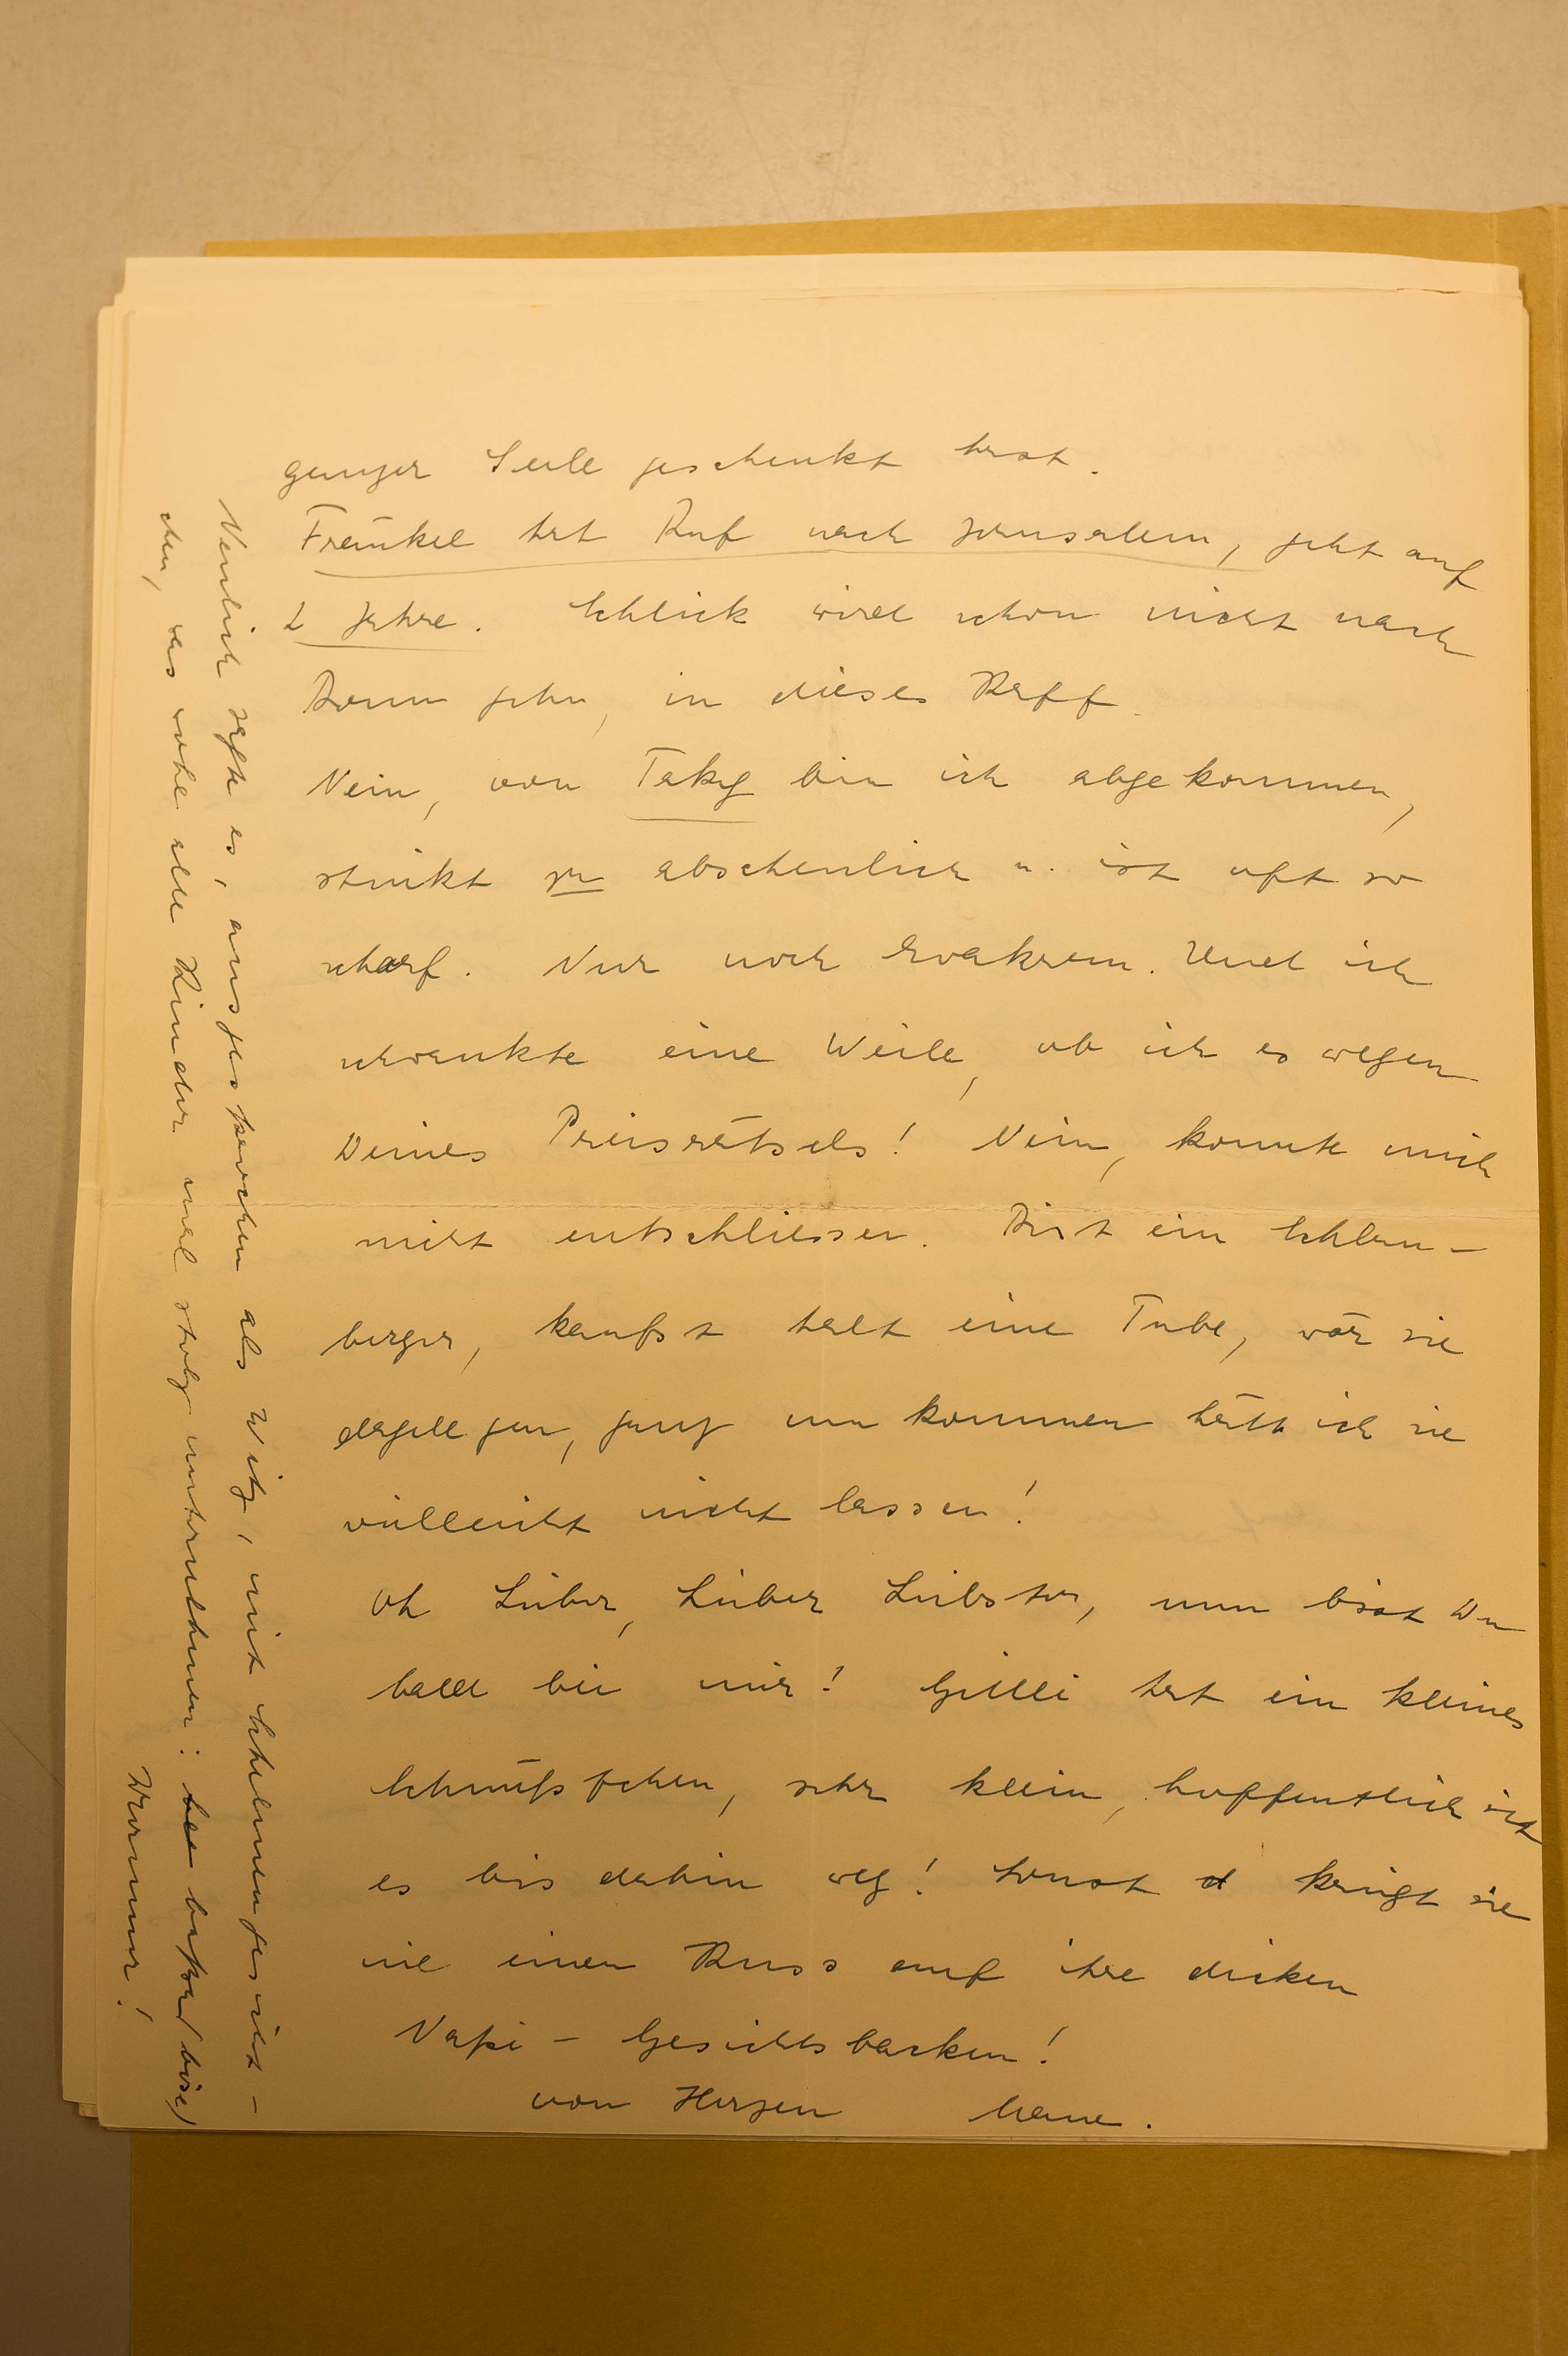 ganzer Seele geschenkt hast.
Fraenkel hat Ruf nach Jerusalem, geht auf
2 Jahre. Schlick wird schon nicht nach
Bonn gehn, in dieses Kaff.
Nein, von Taky bin ich abgekommen,
stinkt zu abscheulich u. ist oft so
scharf. Nur noch Evakrem. Und ich
schwankte eine Weile, ob ich es wegen
Deines Preisrätsels! Nein, konnte mich
nicht entschliessen. Bist ein Schlau-
berger, kaufst halt eine Tube, wär sie
dagelegen, ganz umkommen hätt ich sie
vielleicht nicht lassen!
Oh Lieber, Lieber Liebster, nun bist Du
bald bei mir! Gilli hat ein kleines
Schnüpfchen, sehr klein, hoffentlich ist
es bis dahin weg! Sonst d kriegt sie
nie einen Kuss auf ihre dicken
Gesichtsbacken!
von Herzen
Neulich sagte es, ausgesprochen als Witz, mit Schelmengesicht-
chen, was wohl alle Kinder mal stolz unternehmen: